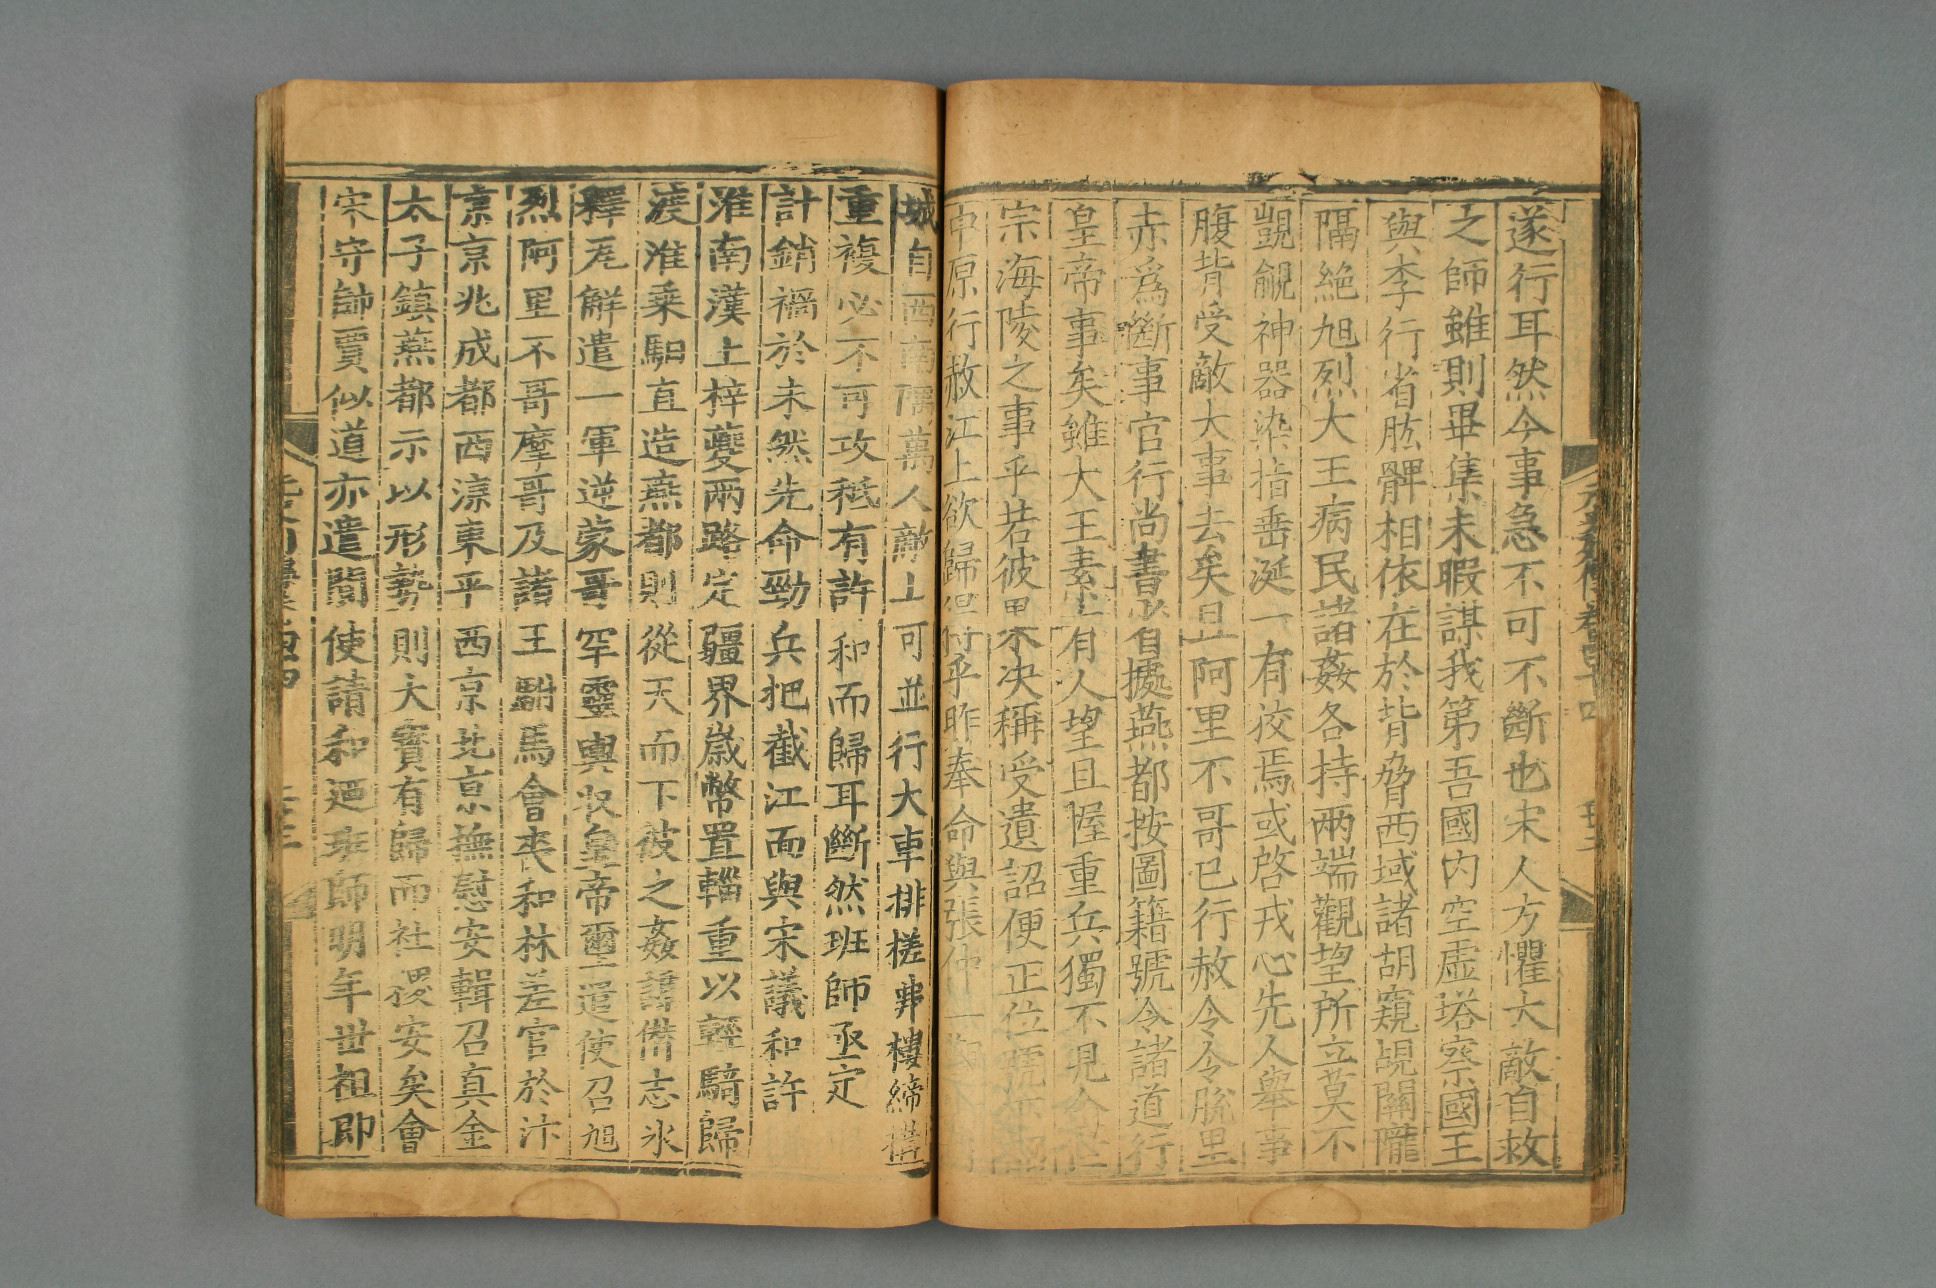 遂行耳然今事急不可不斷也宋人方懼大敵自救
之師雖則畢集未暇謀我第吾國內空虛塔察國王
與李行省肱髀相依在於背脅西域諸胡窺覘關隴
隔絶旭烈大王病民諸姦各持兩端觀望所立莫不
覬覦神器染指垂涎一有狡焉或啓戎心先人舉事
腹背受敵大事去矣且阿里不哥已行赦令令脫里
赤爲斷事官行尚書省據燕都按圖籍號令諸道行
皇帝事矣雖大王素有人望且握重兵獨不見金世
宗海陵之事乎若彼果決稱受遺詔便正位號
中原行赦江上欲歸得乎昨奉命與張仲一
城自西南隅萬人敵上可並行大車排槎弗樓締構
重複必不可攻秪有許和而歸耳斷然班師亟定
計銷禍於未然先命勁兵把截江面與宋議和許
淮南漢上梓夔兩路定疆界歲幣置輜重以輕騎歸
渡淮乘馹直造燕都則從天而下彼之姦謀僭志氷
釋瓦解遣一軍逆蒙哥罕靈轝収皇帝璽遣使召旭
烈阿里不哥摩哥及諸王駙馬會喪和林差官於汴
京京兆成都西涼東平西京北京撫慰安輯召真金
太子鎮燕都示以形勢則大寶有歸而社稷安矣會
宋守帥賈似道亦遣間使請和迺班師明年世祖即